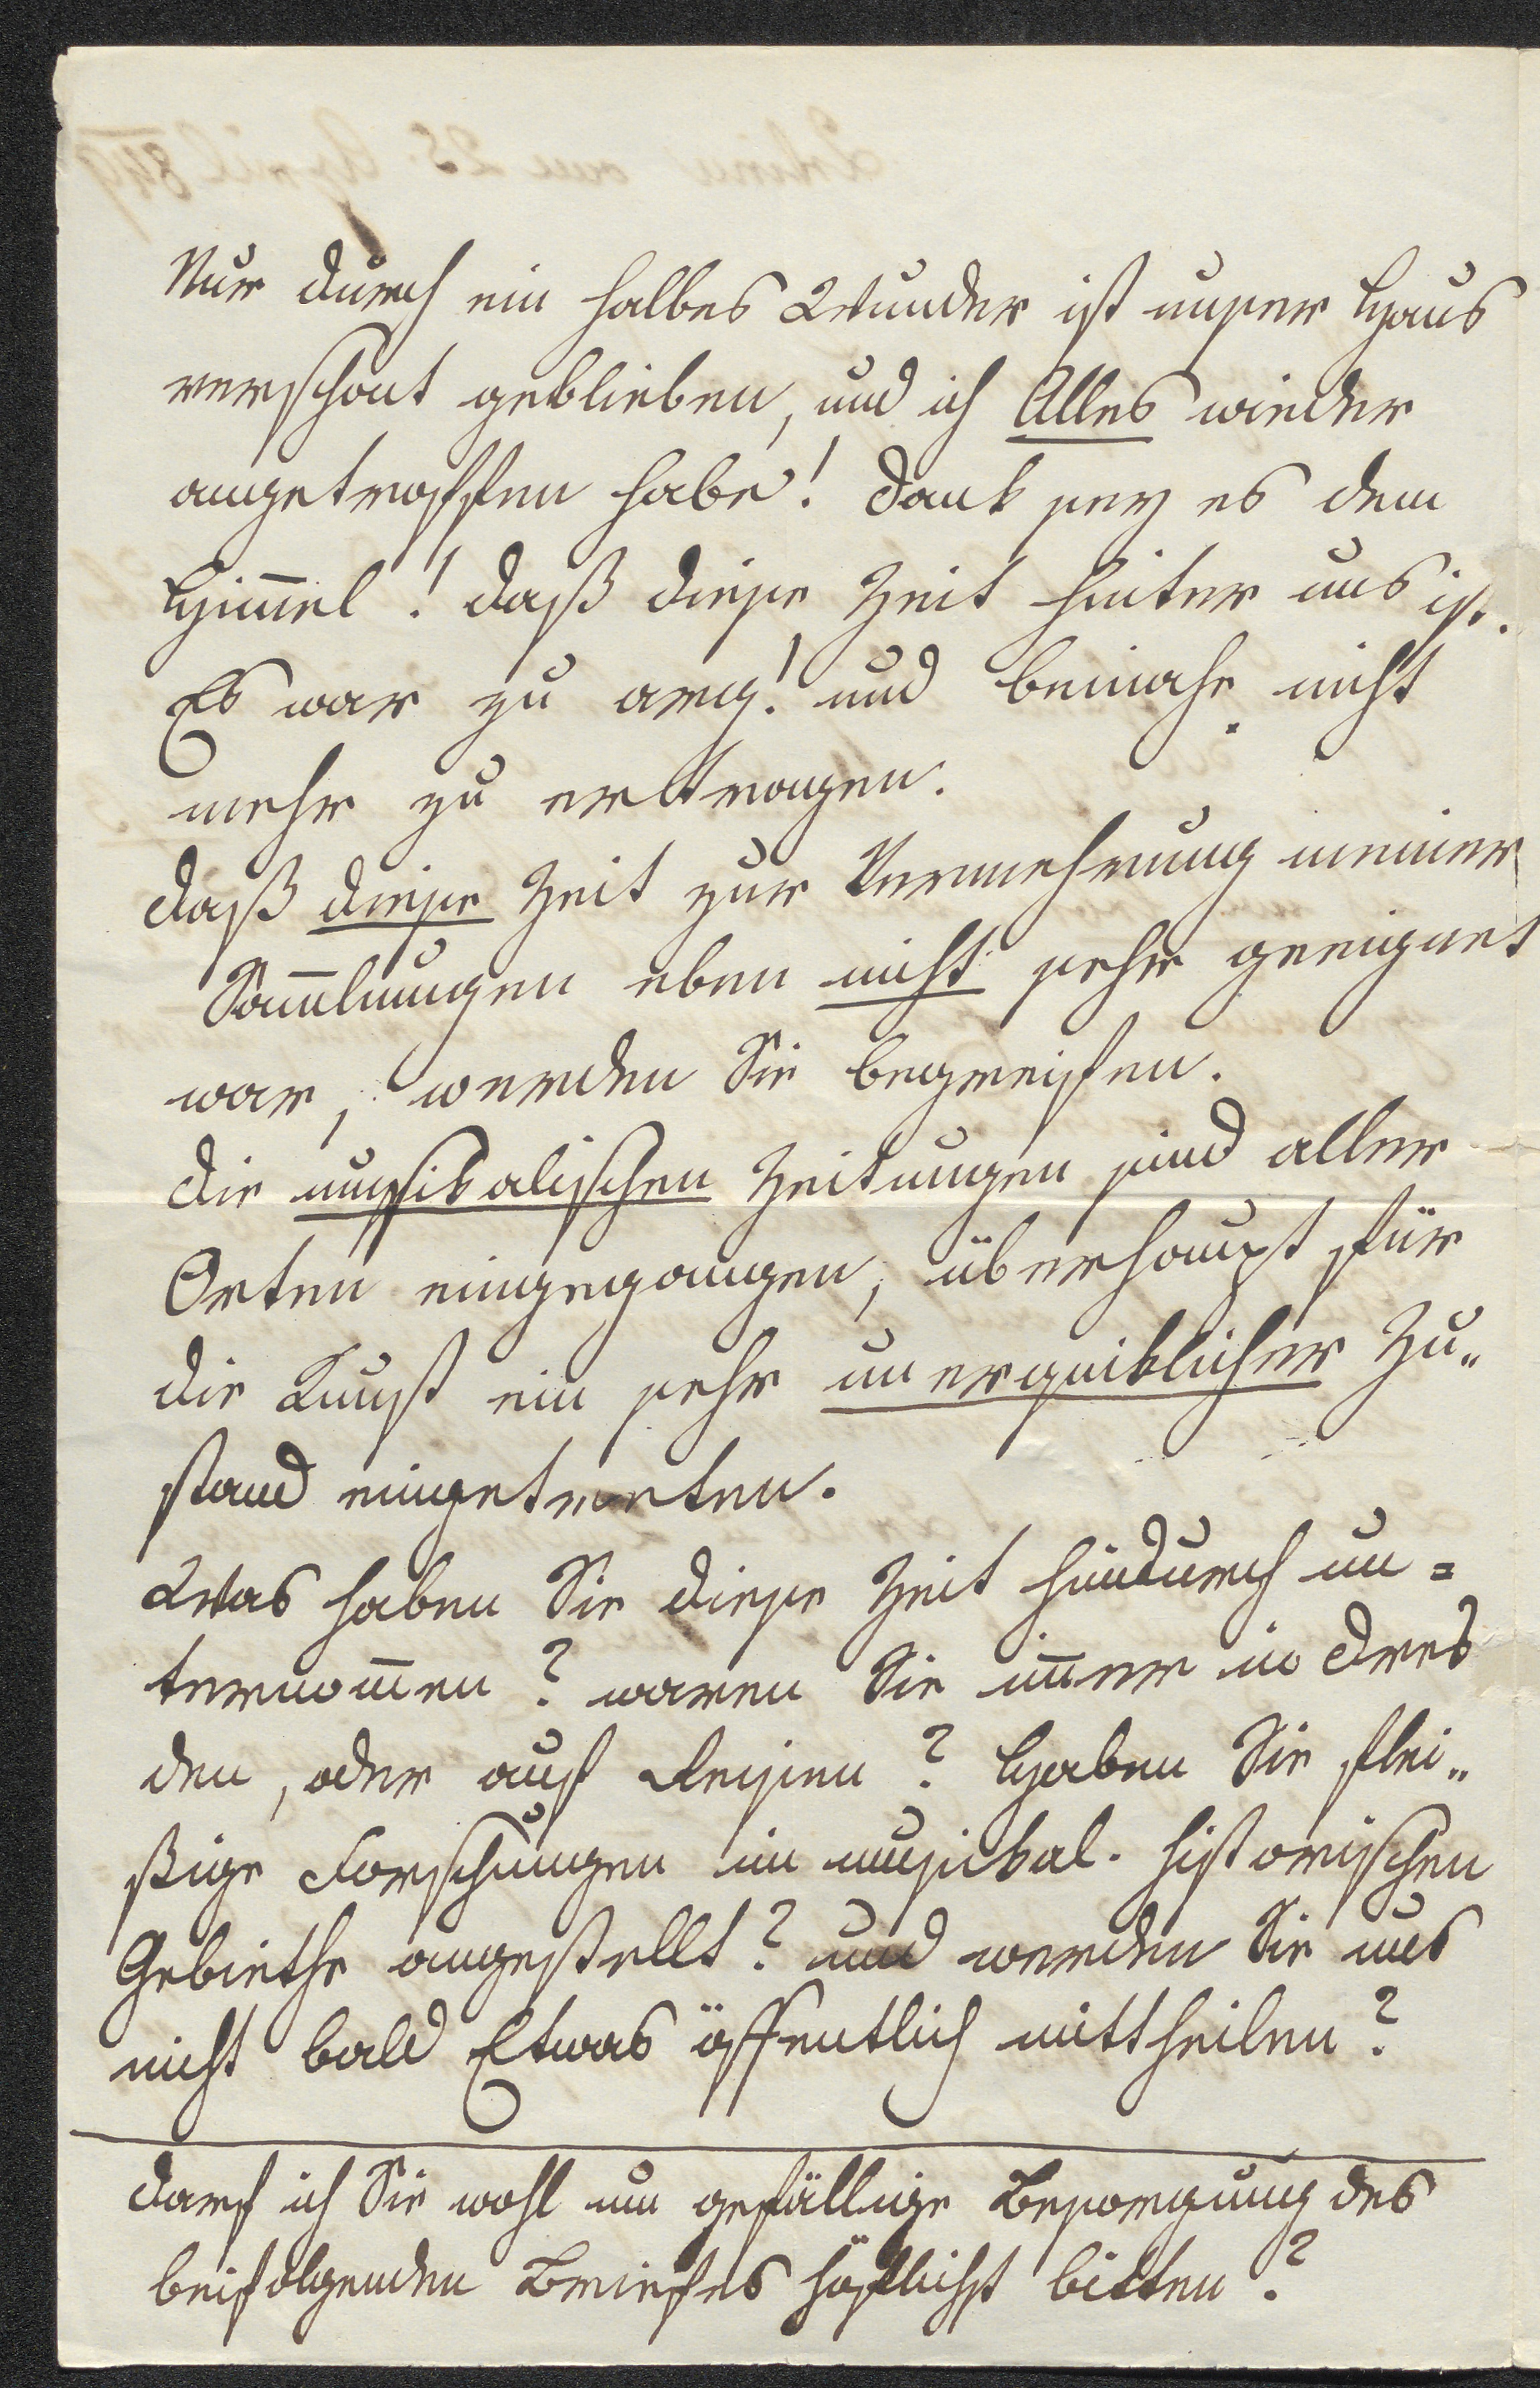 Nur durch ein halbes Wunder ist unser Haus
verschont geblieben, und ich Alles wieder
angetroffen habe! Dank sey es dem
Him̅el! daß diese Zeit hinter uns ist.
Es war zu arg! und beinahe nicht
mehr zu ertragen.
Daß diese Zeit zur Vermehrung meiner
Sam̅lungen eben nicht sehr geeignet
war, werden Sie begreifen.
Die musikalischen Zeitungen sind aller
Orten eingegangen, überhaupt für
die Kunst ein sehr unerquiklicher Zu„
stand eingetretten.
Was haben Sie diese Zeit hindurch un=
ternom̅en? waren Sie im̅er in Dres
den, oder auf Reisen? Haben Sie flei„
ßige Forschungen im musikal. historischen
Gebiethe angestellt? und werden Sie uns
nicht bald Etwas öffentlich mittheilen?
Darf ich Sie wohl um gefällige Besorgung des
beifolgenden Briefes höflichst bitten?